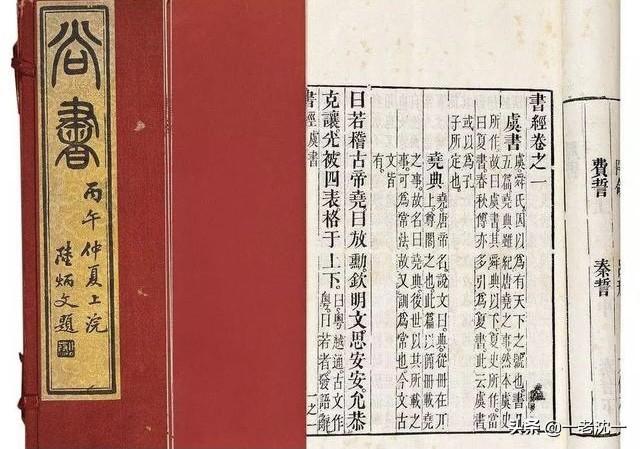 尚書
丙午仲夏上浣
陸炳文題
費誓
秦誓
書經卷之一
虞書
虞舜氏因以為有天下之號也書凡
五篇堯典雖紀唐堯之事然本虞史
所作故曰虞書其舜典以下夏史所作當
曰夏書春秋傳亦多引為夏書此云虞書
或以為孔
子所定也
堯典
堯唐帝名說文曰典從冊在丌
上尊閣之也此篇以簡冊載堯
之事故名曰堯典後世以其所載之
事可為常法故又訓為常也今文古
文皆
有
曰若稽古帝堯曰放勳欽明文思安安允恭
克讓光被四表格于上下
曰粵越通古文作
粵曰若者發語辭
書經虞書
一之一
头条 @一老沈一